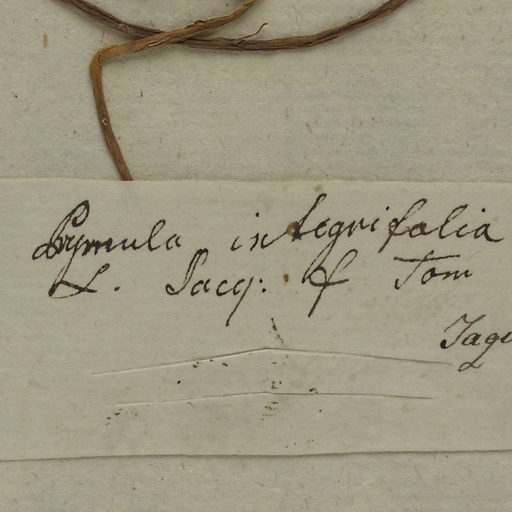 Prymula integrifolia
L. Jacq: f Tom
Jaqu